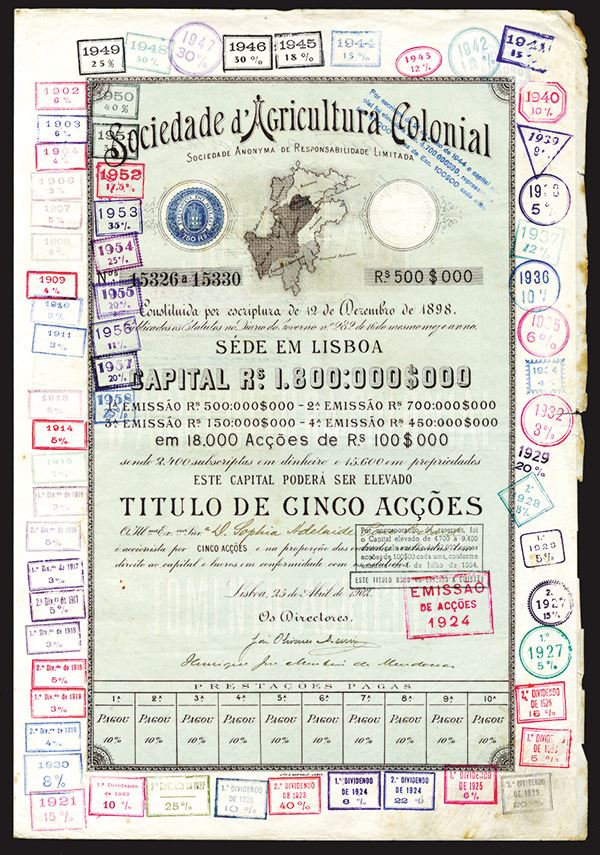 1949
25%
1948
50%
1947
30%
1946
30%
1945
18%
1944
15%
1943
12%
1942
12%
1941
15%
1902
6%
1903
6%
1904
4%
1906
3%
1907
5%
1908
6%
1909
4%
1910
3%
1911
3%
1913
5%
1914
5%
1950
40%
1952
17,5%
1953
35%
1954
25%
1955
20%
1956
11%
1957
20%
1958
25%
Sociedade d'Agricultura Colonial
Sociedade Anonyma de Responsabilidade Limitada
Nos 15326 a 15330
Rs 500$000
Constituida por escriptura de 12 de Dezembro de 1898.
Publicados os Estatutos no Diario do Governo nº 282 de 16 do mesmo mez e anno.
SÉDE EM LISBOA
CAPITAL Rs 1.800:000$000
1ª EMISSÃO Rs 500:000$000 - 2ª EMISSÃO Rs 700:000$000
3ª EMISSÃO Rs 150:000$000 - 4ª EMISSÃO Rs 450:000$000
em 18.000 Acções de Rs 100$000
sendo 2.400 subscriptas em dinheiro e 15.600 em propriedades
ESTE CAPITAL PODERÁ SER ELEVADO
TITULO DE CINCO ACÇÕES
D. Sophia Adelaide
é accionista por CINCO ACÇÕES e na proporção das
direito ao capital e lucros em conformidade com
Por incorporação de reservas, foi
o Capital elevado de 4.700 a 9.400
acções de 100$00 cada uma, conforme
de Julho de 1954.
Lisboa, 25 de Abril de 1902.
Os Directores.
EMISSÃO
DE ACÇÕES
1924
PRESTAÇÕES PAGAS
1ª 2ª 3ª 4ª 5ª 6ª 7ª 8ª 9ª 10ª
PAGOU PAGOU PAGOU PAGOU PAGOU PAGOU PAGOU PAGOU PAGOU PAGOU
10% 10% 10% 10% 10% 10% 10% 10% 10% 10%
1940
10%
1939
1938
5%
1937
12%
1936
10%
1935
6%
1934
1932
3%
1929
20%
1928
8%
5%
2º
1927
15%
1º
1927
5%
2º DIVIDENDO
DE 1926
15%
1º DIVIDENDO
5%
1º Div. de 1917
3%
2º Div. de 1917
5%
1º Div. de 1918
3%
2ª Div. de 1918
5%
1ª Div. de 1919
3%
2ª Div. de 1919
4%
1920
8%
1921
15%
1º Dividendo
de 1922
10%
2º Dividendo de 1922
25%
1º DIVIDENDO
DE 1923
10%
2º DIVIDENDO
DE 1923
40%
1º DIVIDENDO
DE 1924
6%
2º DIVIDENDO
DE 1924
22%
1º DIVIDENDO
DE 1925
6%
2º DIVIDENDO
DE 1925
20%